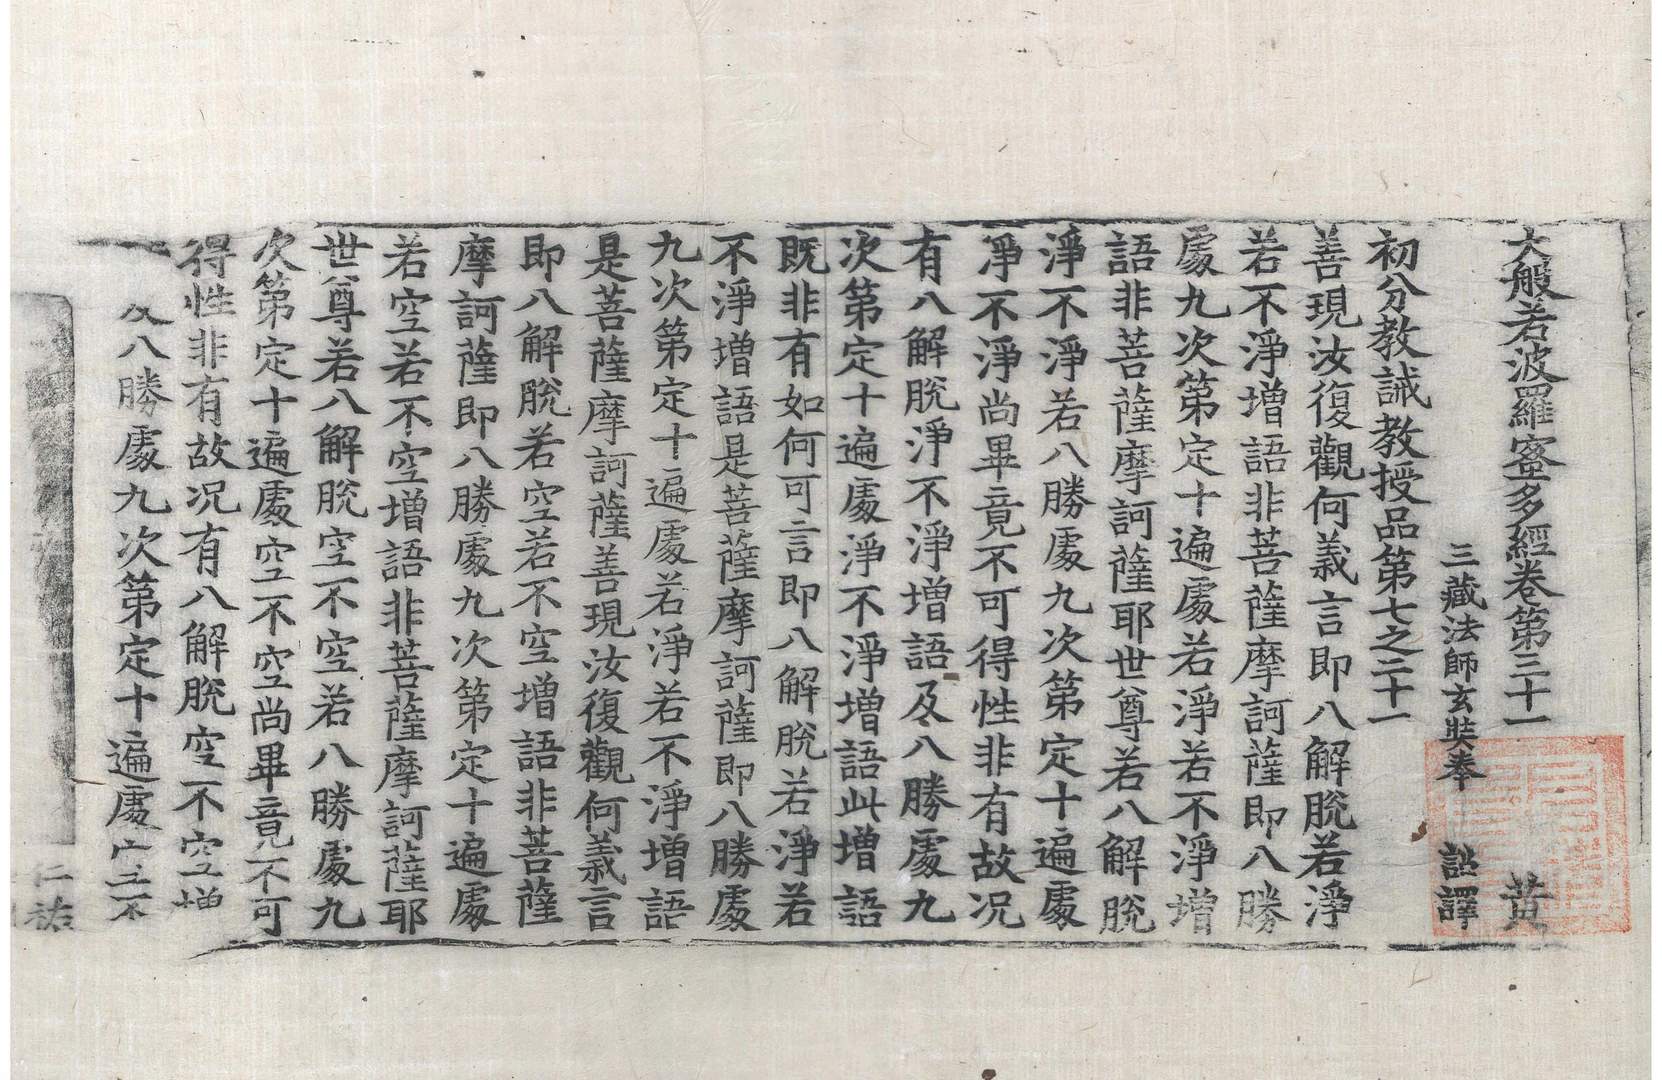 大般若波羅蜜多經卷第三十一 黃
三藏法師玄奘奉 詔譯
初分教誡教授品第七之二十一
善現汝復觀何義言即八解脫若淨
若不淨增語非菩薩摩訶薩即八勝
處九次第定十遍處若淨若不淨增
語非菩薩摩訶薩耶世尊若八解脫
淨不淨若八勝處九次第定十遍處
淨不淨尚畢竟不可得性非有故況
有八解脫淨不淨增語及八勝處九
次第定十遍處淨不淨增語此增語
既非有如何可言即八解脫若淨若
不淨增語是菩薩摩訶薩即八勝處
九次第定十遍處若淨若不淨增語
是菩薩摩訶薩善現汝復觀何義言
即八解脫若空若不空增語非菩薩
摩訶薩即八勝處九次第定十遍處
若空若不空增語非菩薩摩訶薩耶
世尊若八解脫空不空若八勝處九
次第定十遍處空不空尚畢竟不可
得性非有故況有八解脫空不空增
及八勝處九次第定十遍處空不
仁祐